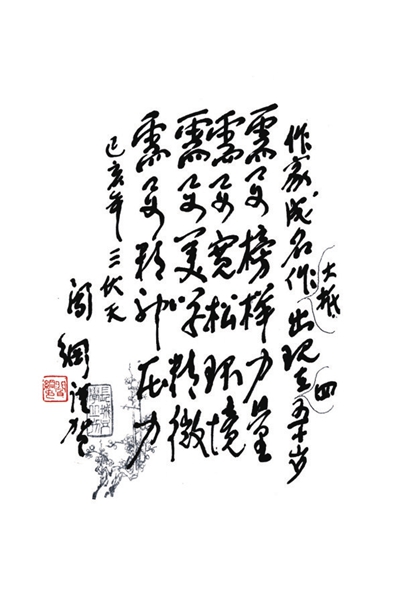 作家成名作大抵出现在四五十岁
需要榜样力量
需要宽松环境
需要美学精微
需要精神压力
己亥年三伏天
阎纲